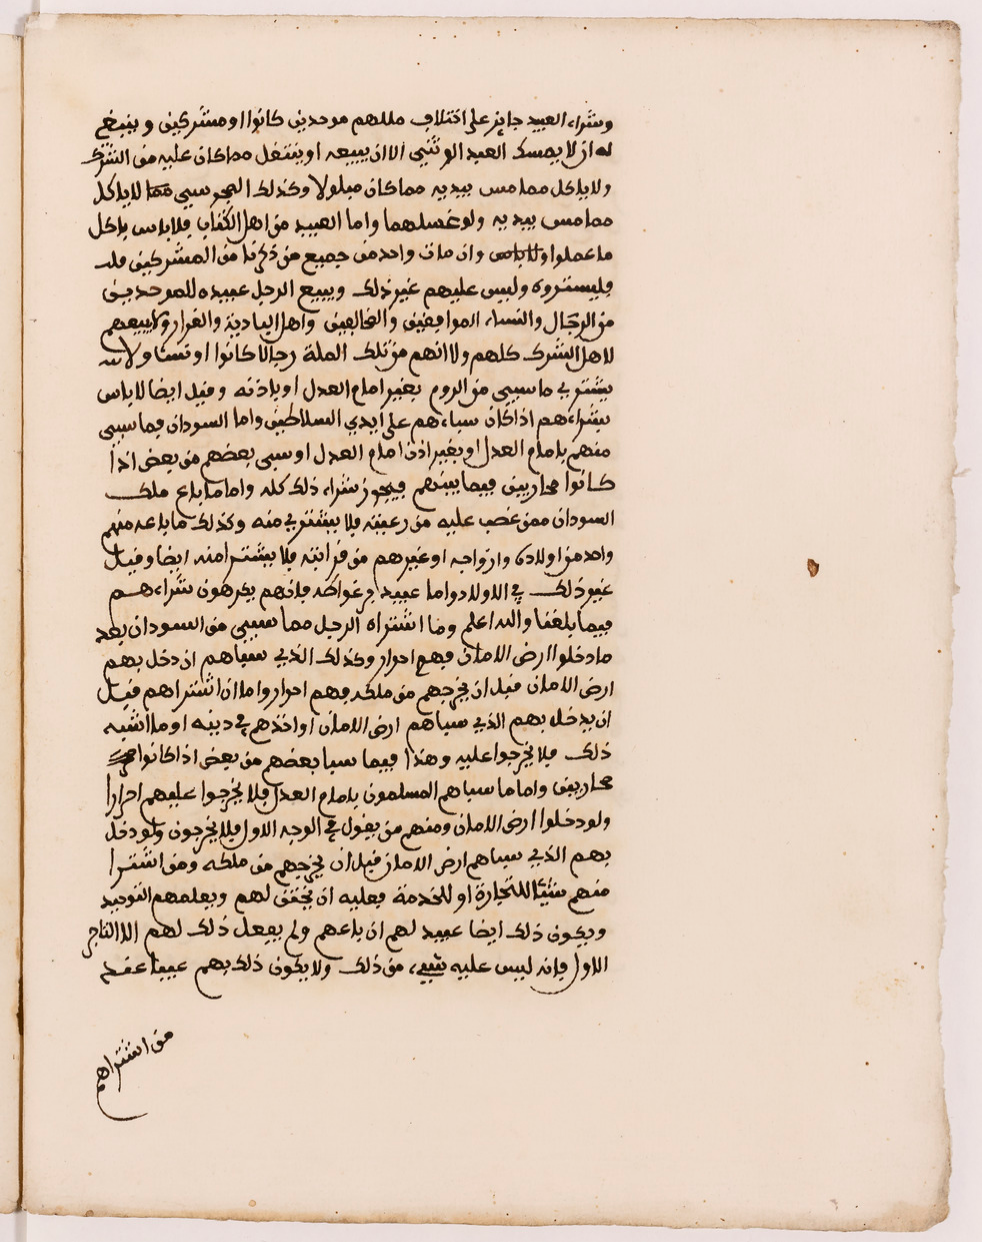 وشراء العبيد جايز على اختلاف مللهم موحدين كانوا او مشركين وينبغي
له ان لا يمسك العبد الوثني الا ان يبيعه او ينتقل مما كان عليه من الشرك
ولا ياكل مما مس بيديه مما كان مبلولا وكذلك المجوسي لا ياكل
مما مس بيديه ولو غسلهما واما العبيد من اهل الكتاب فلا باس باكل
ما عملوا وان مات واحد من جميع من ذكرنا من المشركين
فليستروه وليس عليهم غير ذلك ويبيع الرجل عبيده للموحدين
من الرجال والنساء الموافقين والمخالفين واهل البادية والقرار ولا يبيعهم
لاهل الشرك كلهم ولا انهم من تلك الملة رجالا كانوا او نسا ولا
يشتري ما سبي من الروم بغير امام العدل او باذنه وقيل ايضا لا باس
بشراءهم اذا كان سباءهم على ايدي السلاطين واما السودان فيما سبي
منهم بامام العدل او بغير اذن امام العدل او سبى بعضهم من بعض اذا
كانوا محاربين فيما بينهم فيجوز شراء ذلك كله واما ما باع ملك
السودان ممن غصب عليه من رعيته فلا يشتري منه وكذلك ما باعه منهم
واحد من اولاده وازواجه او غيرهم من قرابته فلا يشترا منه ايضا وقيل
غير ذلك في الاولاد واما عبيد فانهم يكرهون شراءهم
فيما بلغنا والله اعلم وما اشتراه الرجل مما سبي من السودان بعد
ما دخلوا ارض الامان فهم احرار وكذلك الذي سباهم ان دخل بهم
ارض الامان قبل ان يخرجهم من ملكه فهم احرار واما ان اشتراهم قبل
ان يدخل بهم الذي سباهم ارض الامان او اخذهم في دينه او ما اشبه
ذلك فلا يخرجوا عليه وهذا فيما سبا بعضهم من بعض اذا كانوا
محاربين واما ما سباهم المسلمون بامام العدل فلا يخرجوا عليهم احرارا
ولو دخلوا ارض الامان ومنهم من يقول في الوجه الاول فلا يخرجون ولو دخل
بهم الذي سباهم ارض الامان قبل ان يخرجهم من ملكه ومن اشترا
منهم شيئا للتجارة او للخدمة فعليه ان يختن لهم ويعلمهم التوحيد
ويكون ذلك ايضا عيبد لهم ان باعهم ولم يفعل ذلك لهم الا التاجر
الاول فانه ليس عليه شيء من ذلك ولا يكون ذلك بهم عيبا
من اشتراهم